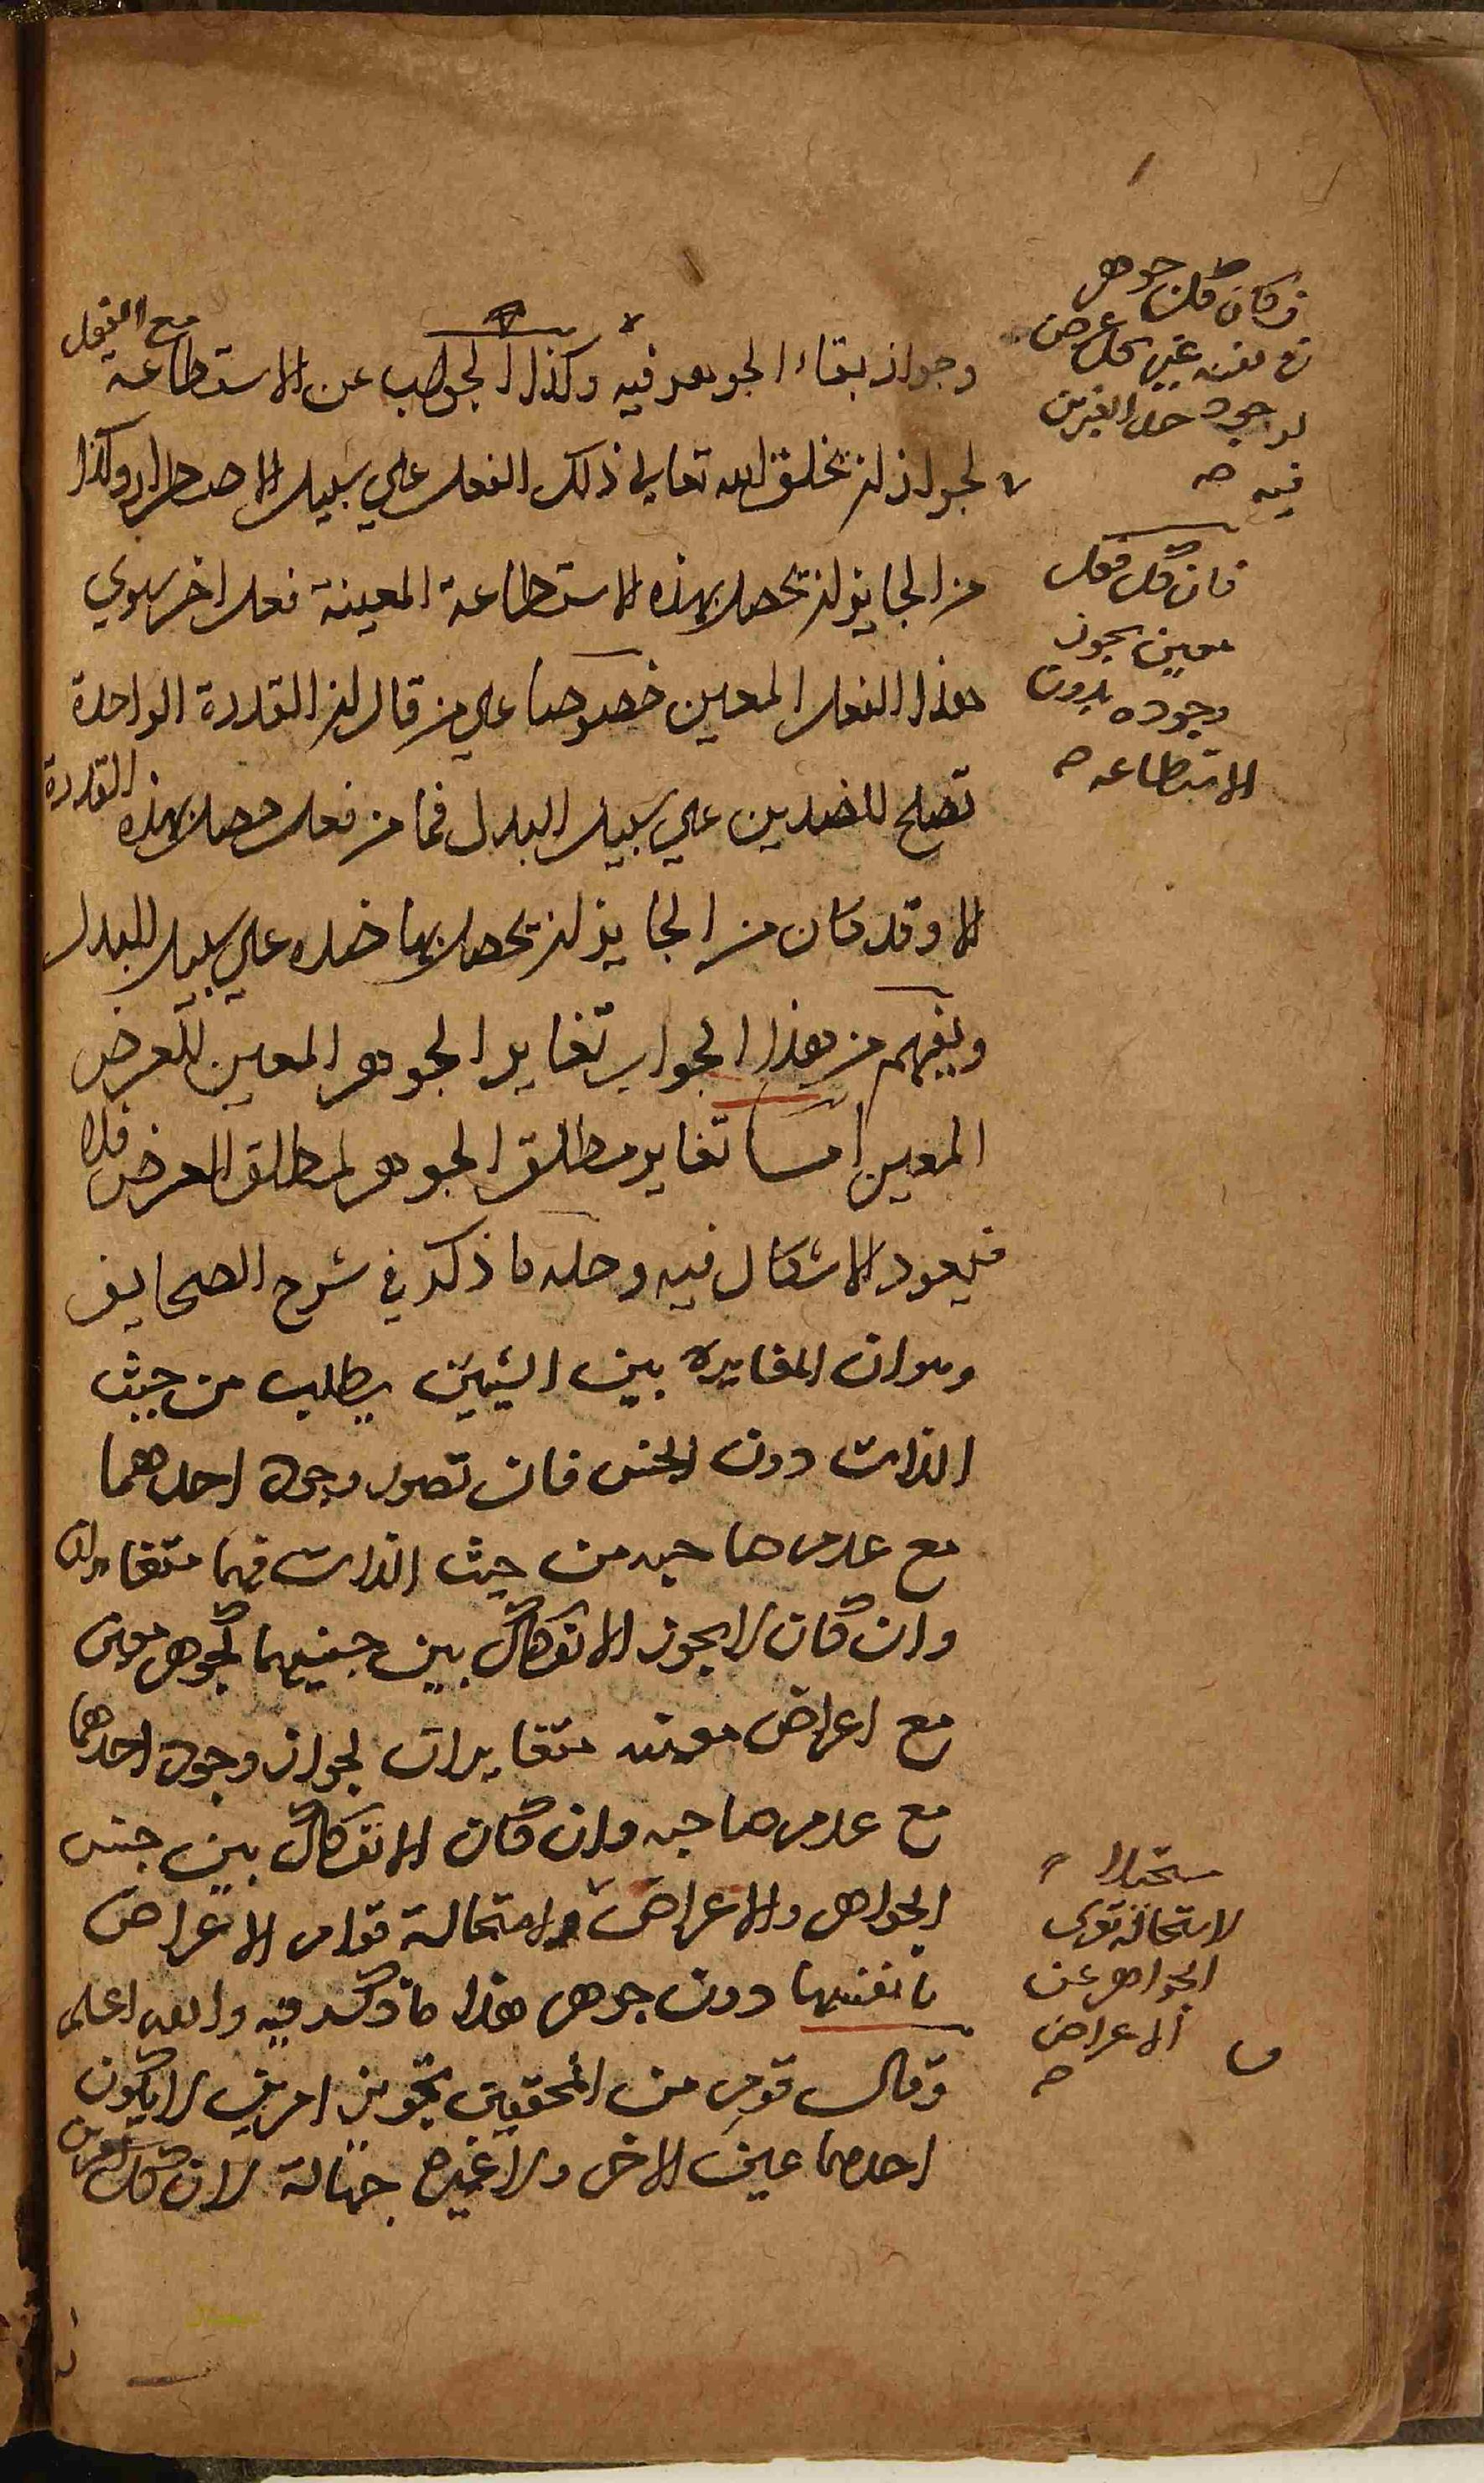 وجواز بقاء الجوهر فيه وكذا الجواب عن الاستطاعة مع الفعل
لجواز ان يخلق الله تعالى ذلك الفعل علي سبيل الاضطرار وكذا
من الجايز ان يحصل بهذه الاستطاعة المعينة فعل اخر سوي
هذا الفعل المعين خصوصا علي من قال ان القدرة الواحدة
تصلح للضدين علي سبيل البدل فما من فعل حصل بهذه القدرة
الا وقد كان من الجايز ان يحصل بها ضده علي سبيل البدل
ويفهم من هذا الجواب تغاير الجوهر المعين للعرض
المعين اما تغاير مطلق الجوهر لمطلق العرض فلا
فيعود الاشكال فيه وحله ما ذكر في شرح الصحايف
وهو ان المغايرة بين الشيئين يطلب من حيث
الذات دون الجنس فان تصور وجود احدهما
مع عدم صاحبه من حيث الذات فهما متغايران
وان كان لا يجوز الانفكاك بين جنسيهما كجوهر معين
مع اعراض معينه متغايرات لجواز وجود احدهما
مع عدم صاحبه وان كان الانفكاك بين جنس
الجواهر والاعراض واستحالة قوام الاعراض
بانفسها دون جوهر هذا ما ذكر فيه والله اعلم
وقال قوم من المحققين تجويز امرين لا يكون
احدهما عين الاخر ولا غيره جهالة لان كل امرين
فكان كل جوهر
مع معينه غير كل عرض
لوجود حد الغيرين
فيه صح
فان كل فعل
معين يجوز
وجوده بدون
الاستطاعه صح
مستحيلا
لاستحالة تعرى
الجواهر عن
الاعراض
صح